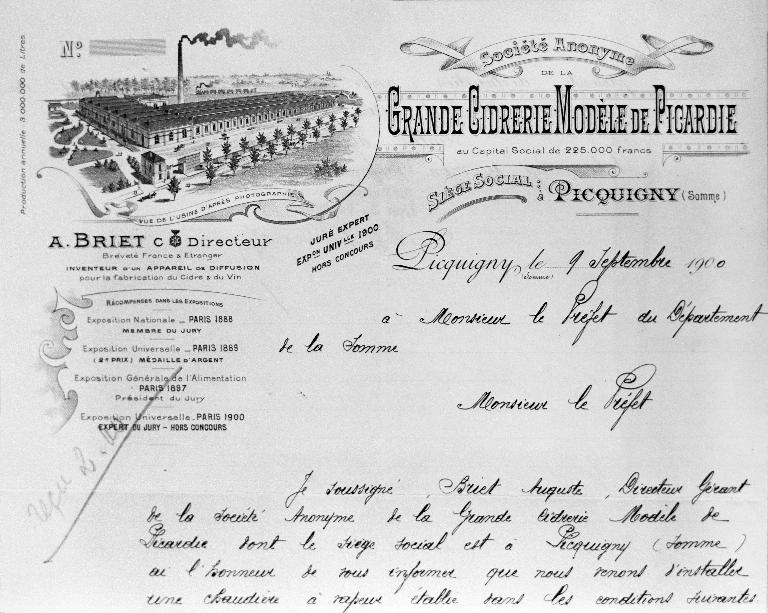 Production annuelle : 3.000.000 de Litres
Nº
VUE DE L'USINE D'APRÈS PHOTOGRAPHIE
Société Anonyme
DE LA
GRANDE CIDRERIE MODÈLE DE PICARDIE
au Capital Social de 225.000 francs
SIÈGE SOCIAL à PICQUIGNY (Somme)
A. BRIET C Directeur
Breveté France & Etranger
INVENTEUR D'UN APPAREIL DE DIFFUSION
pour la fabrication du Cidre & du Vin
JURÉ EXPERT
EXPON UNIVLLE 1900
HORS CONCOURS
RÉCOMPENSES DANS LES EXPOSITIONS
Exposition Nationale _ PARIS 1888
MEMBRE DU JURY
Exposition Universelle _ PARIS 1889
(2e PRIX) MÉDAILLE D'ARGENT
Exposition Générale de l'Alimentation
PARIS 1897
Président du Jury
Exposition Universelle _ PARIS 1900
EXPERT DU JURY – HORS CONCOURS
Picquigny, le 9 Septembre 1900
(Somme)
à Monsieur le Préfet du Département
de la Somme
Monsieur le Préfet
Je soussigné, Briet Auguste, Directeur Gérant
de la Société Anonyme de la Grande Cidrerie Modèle de
Picardie dont le siège social est à Picquigny (Somme)
ai l'honneur de vous informer que nous venons d'installer
une chaudière à vapeur établie dans les conditions suivantes